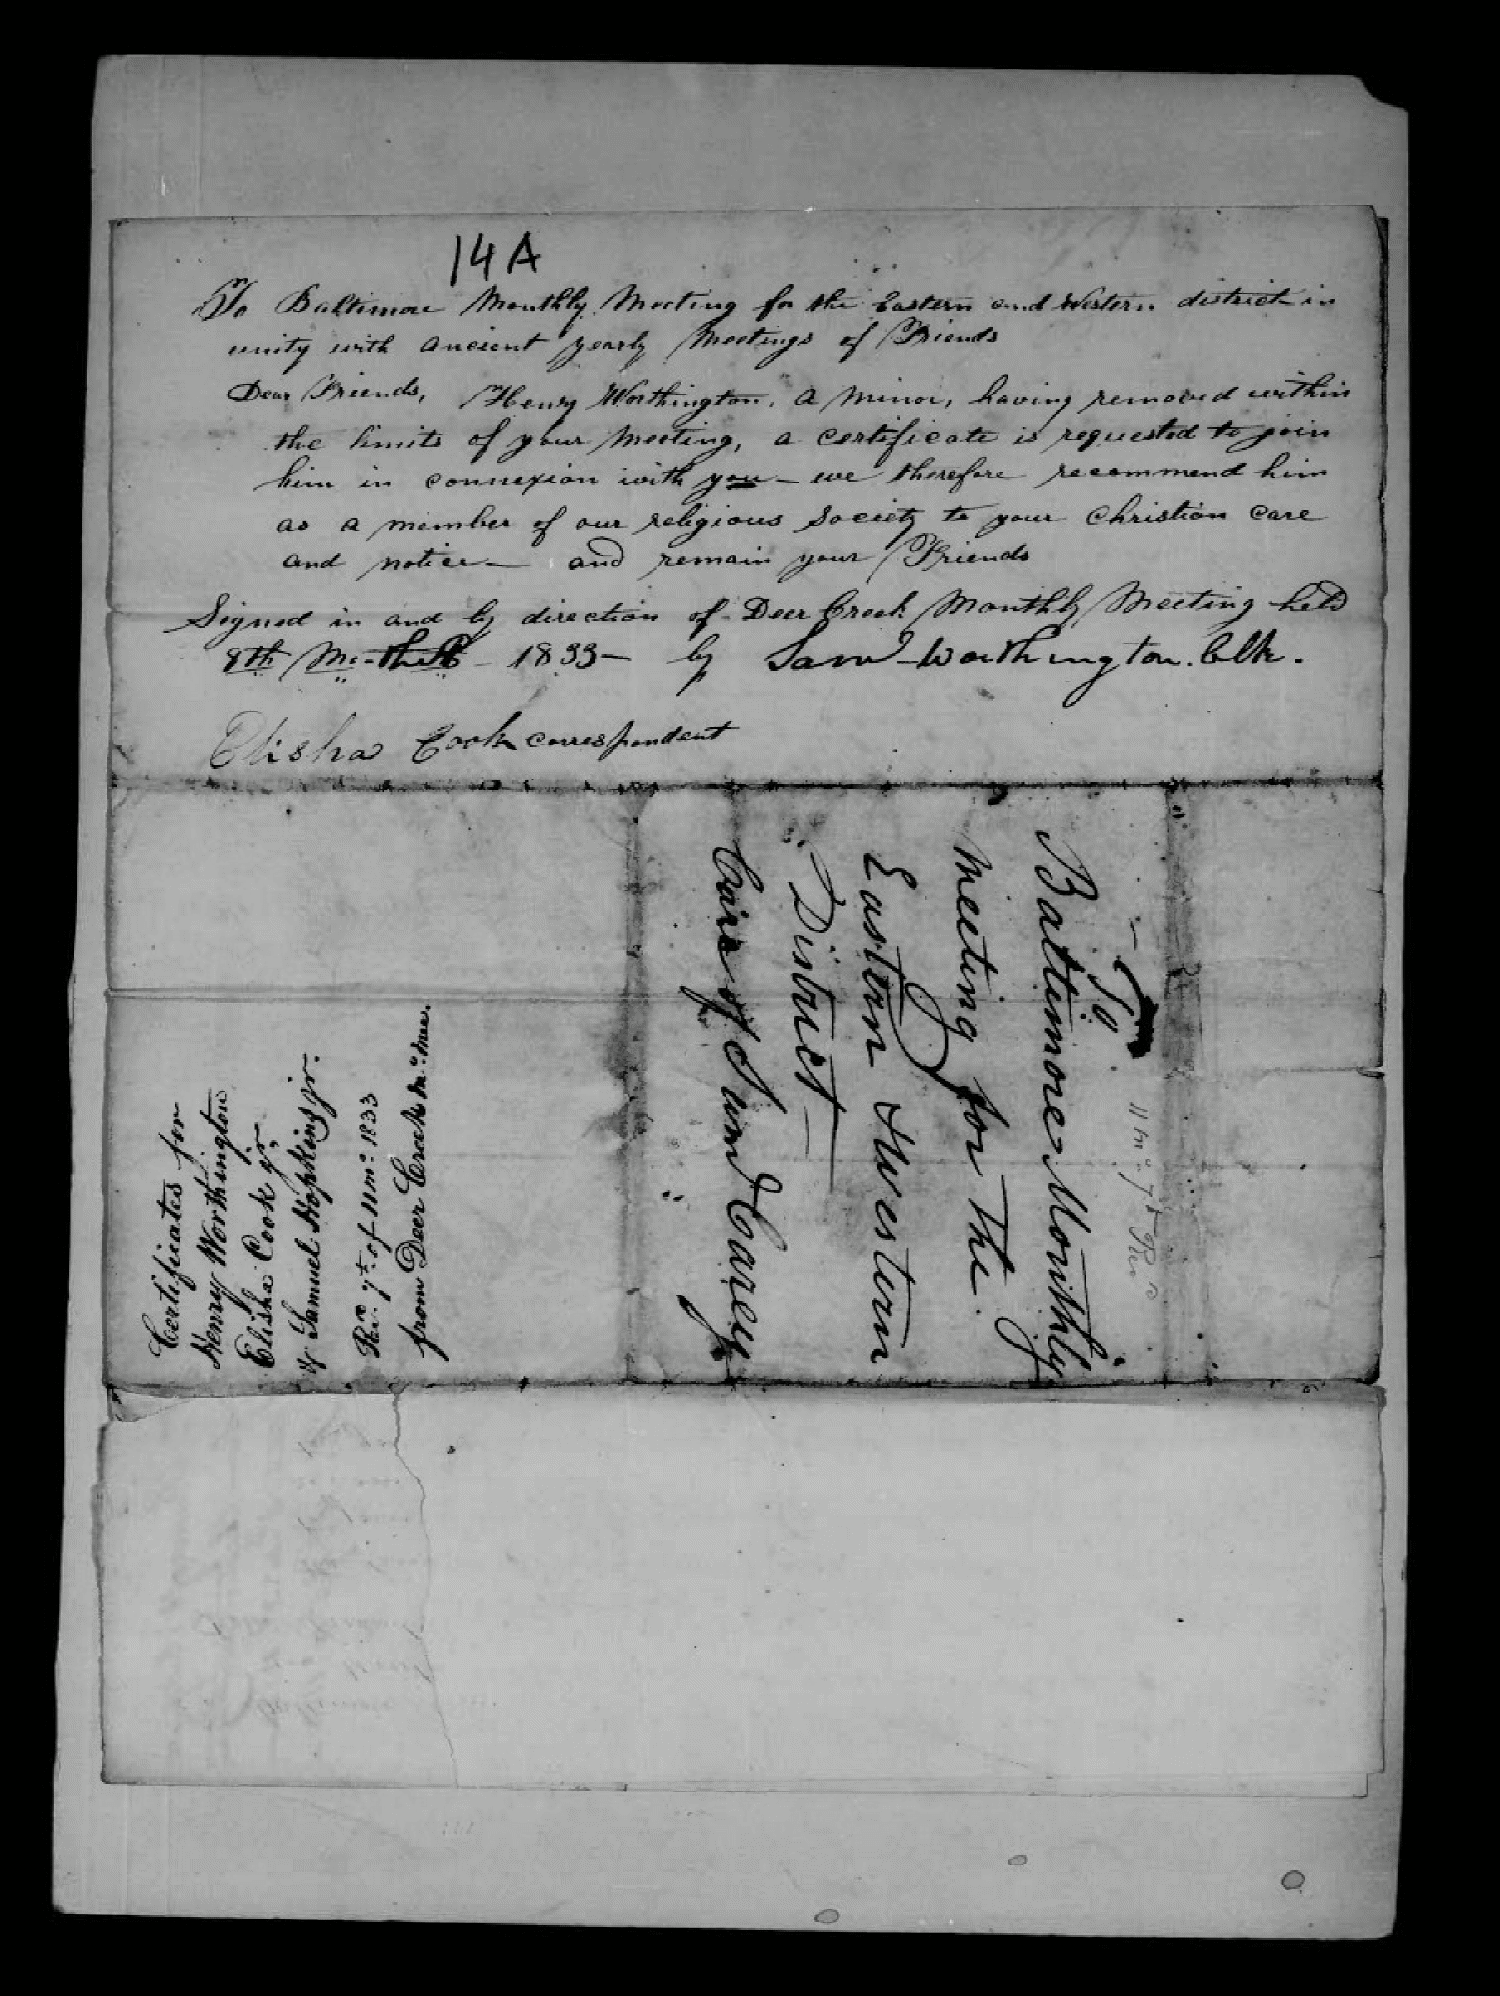 14A
To Baltimore Monthly Meeting for the Eastern and Western district in
unity with ancient yearly Meetings of Friends
Dear Friends, Henry Worthington, a minor, having removed within
the limits of your meeting, a certificate is requested to join
him in connexion with you - we therefore recommend him
as a member of our religious Society to your Christian care
and notice - and remain your Friends
Signed in and by direction of Deer Creek Monthly Meeting held
1833 - by Saml Worthington. Clk.
Elisha Cook correspondent
To
Baltimore Monthly
Meeting for the
Eastern & Western
District -
Care of Saml Carey
11 mo. 7th
Certificates for
Henry Worthington
Elisha Cook jr.
& Samuel Hopkins jr.
Recd 7th of 11 mo. 1833
from Deer Creek Mo. Mee.